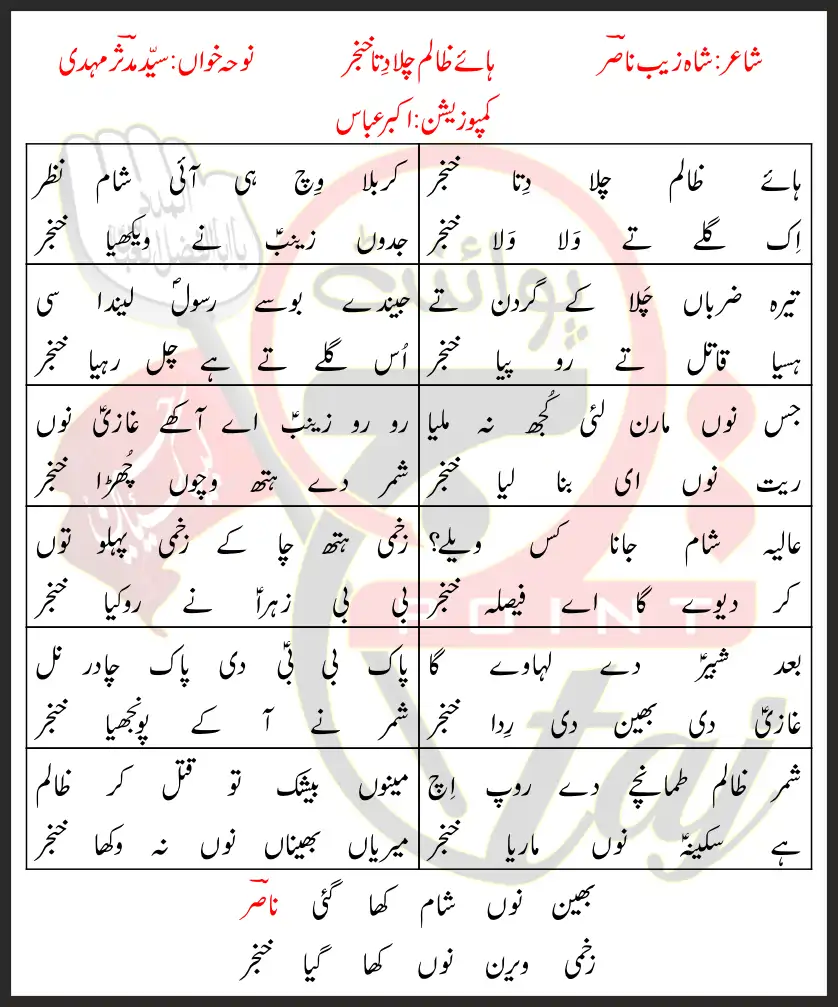 شاعر: شاہ زیب ناصرؔ
ہائے ظالم چلا دِتا خنجر
نوحہ خواں: سیّد مدثرؔ مہدی
کمپوزیشن: اکبر عباس
ہائے ظالم چلا دِتا خنجر
اِک گلے تے وَلا وَلا خنجر
کربلا وِچ ہی آئی شام نظر
جدوں زینبؑ نے ویکھیا خنجر
تیرہ ضرباں چَلا کے گردن تے
ہسیا قاتل تے رو پیا خنجر
جیندے بوسے رسولؐ لیندا سی
اُس گلے تے ہے چل رہیا خنجر
جس نوں مارن لئی کُجھ نہ ملیا
ریت نوں ای بنا لیا خنجر
رو رو زینبؑ اے آکھے غازیؑ نوں
شمر دے ہتھ وچوں چُھڑا خنجر
عالیہ شام جانا کس ویلے؟
کر دیوے گا اے فیصلہ خنجر
زخمی ہتھ چا کے زخمی پہلو توں
بی بی زہراؑ نے روکیا خنجر
بعد شبیرؑ دے لہاوے گا
غازیؑ دی بھین دی رِدا خنجر
پاک بی بیؑ دی پاک چادر نل
شمر نے آ کے پونجھیا خنجر
شمر ظالم طمانچے دے روپ اِچ
ہے سکینہؑ نوں ماریا خنجر
مینوں بیشک تو قتل کر ظالم
میریاں بھیناں نوں نہ وکھا خنجر
بھین نوں شام کھا گئی ناصرؔ
زخمی ویرن نوں کھا گیا خنجر
پوائنٹ
POINT
taj